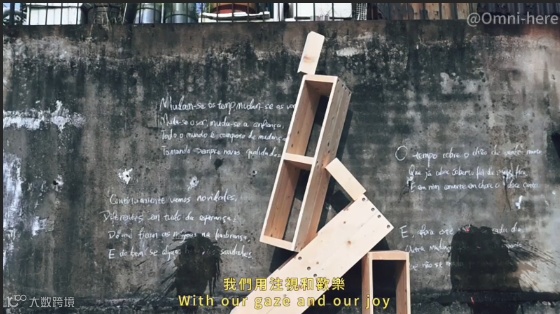 @Omni-here
Mudam-se os tempos, mudam-se as von
Muda-se o ser, muda-se a confiança;
Todo o mundo é composto de mudança,
Tomando sempre novas qualidades.
Continuamente vemos novidades,
Diferentes em tudo da esperança;
Do mal ficam as mágoas na lembrança,
E do bem, se algum saudades.
O tempo cobre o chão de verde manto
Que já coberto foi de neve fria
E em mim converte em choro o doce canto
E afora este
Outra
我們用注視和歡樂
With our gaze and our joy
大数跨境